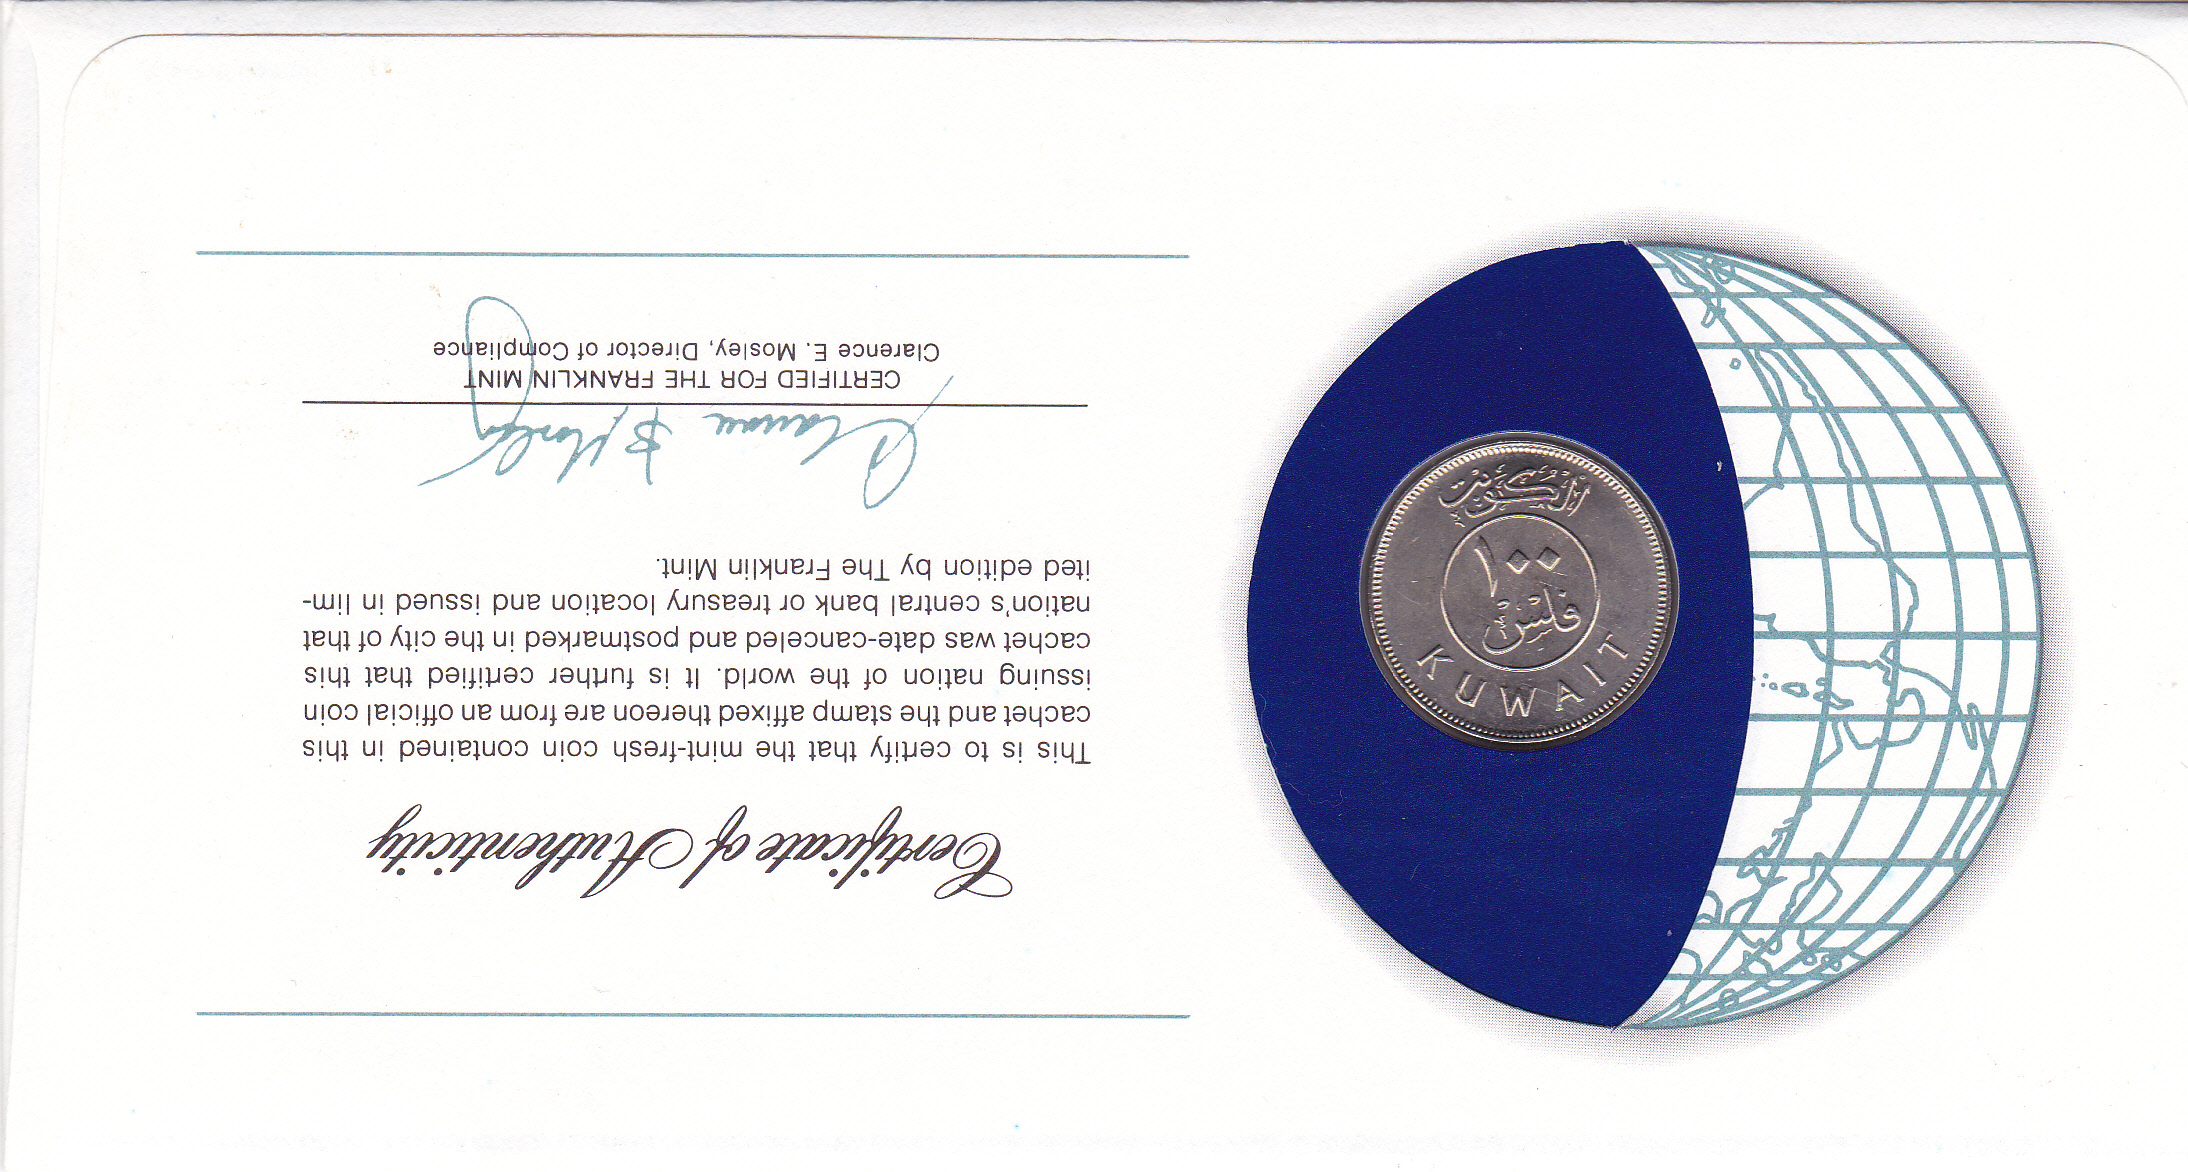 Certificate of Authenticity
This is to certify that the mint-fresh coin contained in this
cachet and the stamp affixed thereon are from an official coin
issuing nation of the world. It is further certified that this
cachet was date-canceled and postmarked in the city of that
nation's central bank or treasury location and issued in lim-
ited edition by The Franklin Mint.
Clarence E Mosley
CERTIFIED FOR THE FRANKLIN MINT
Clarence E. Mosley, Director of Compliance
الكويت
١٠٠
فلس
KUWAIT